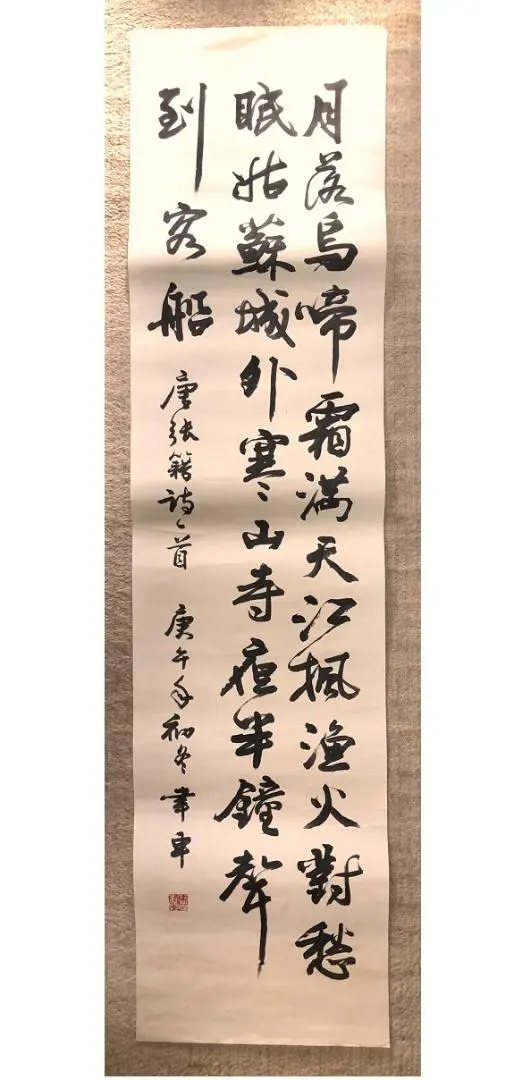 月落烏啼霜滿天江楓漁火對愁
眠姑蘇城外寒山寺夜半鐘聲
到客船
唐張籍詩一首 庚午年初冬